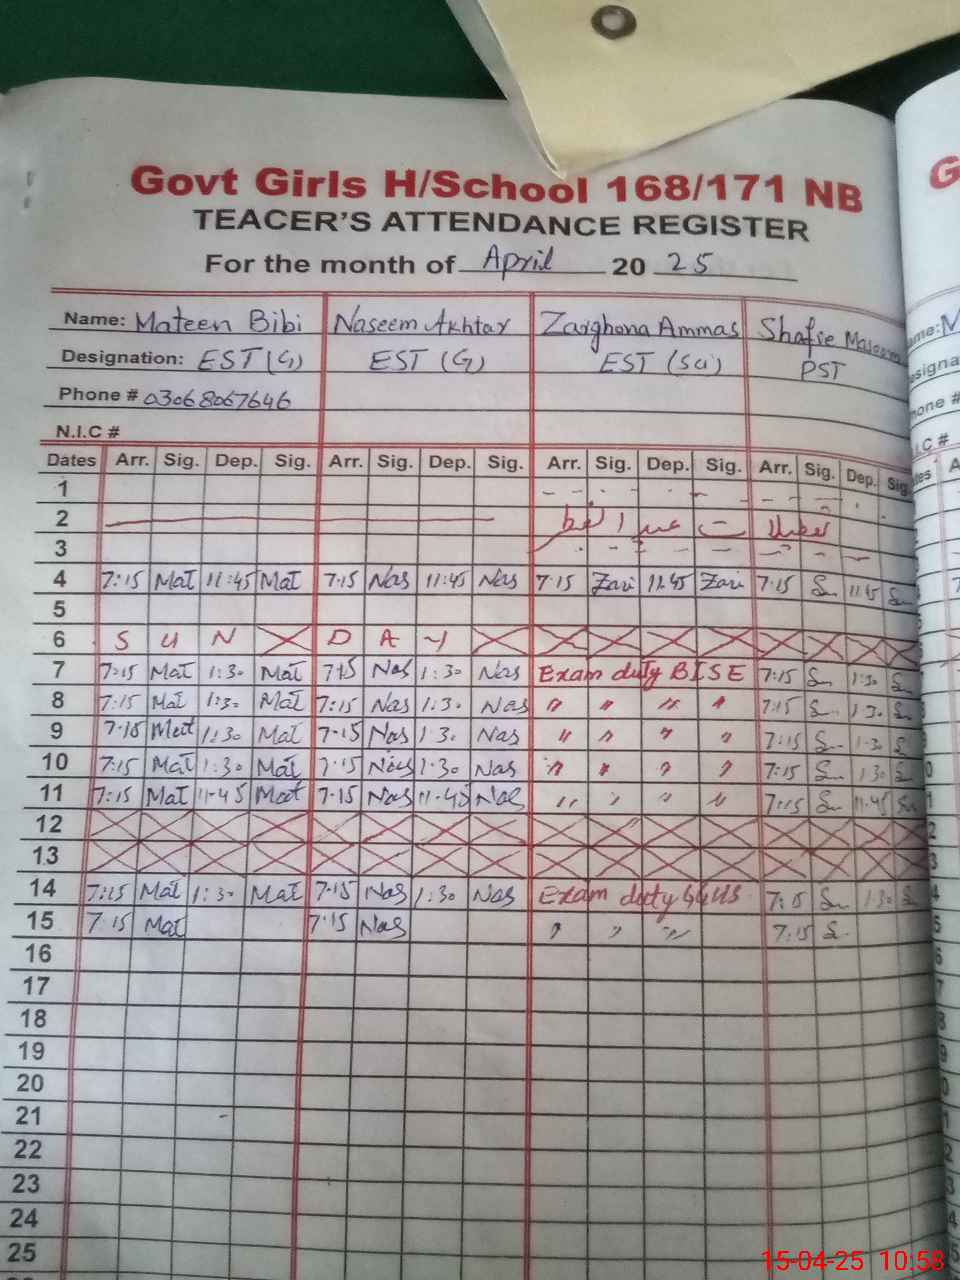 Govt Girls H/School 168/171 NB
TEACER'S ATTENDANCE REGISTER
For the month of April 20 25
Name: Mateen Bibi Naseem Akhtar Zarghona Ammas Shafie
Designation: EST (G) EST (G) EST (Sci) PST
Phone # 03068067646
N.I.C #
Dates Arr. Sig. Dep. Sig. Arr. Sig. Dep. Sig. Arr. Sig. Dep. Sig. Arr. Sig. Dep. Sig.
1
2 تعطیلات عید الفطر
3
4 7:15 Mat 11:45 Mat 7:15 Nas 11:45 Nas 7:15 Zari 11:45 Zari 7:15 11:45
5
6 S U N D A Y
7 7:15 Mat 1:30 Mat 7:15 Nas 1:30 Nas Exam duty BISE 7:15 1:30
8 7:15 Mat 1:30 Mat 7:15 Nas 1:30 Nas " " " " 7:15 1:30
9 7:15 Mat 1:30 Mat 7:15 Nas 1:30 Nas " " " " 7:15 1:30
10 7:15 Mat 1:30 Mat 7:15 Nas 1:30 Nas " " " " 7:15 1:30
11 7:15 Mat 11:45 Mat 7:15 Nas 11:45 Nas " " " " 7:15 11:45
12
13
14 7:15 Mat 1:30 Mat 7:15 Nas 1:30 Nas Exam duty 7:15 1:30
15 7:15 Mat 7:15 Nas " " " 7:15
16
17
18
19
20
21
22
23
24
25
15-04-25 10:58